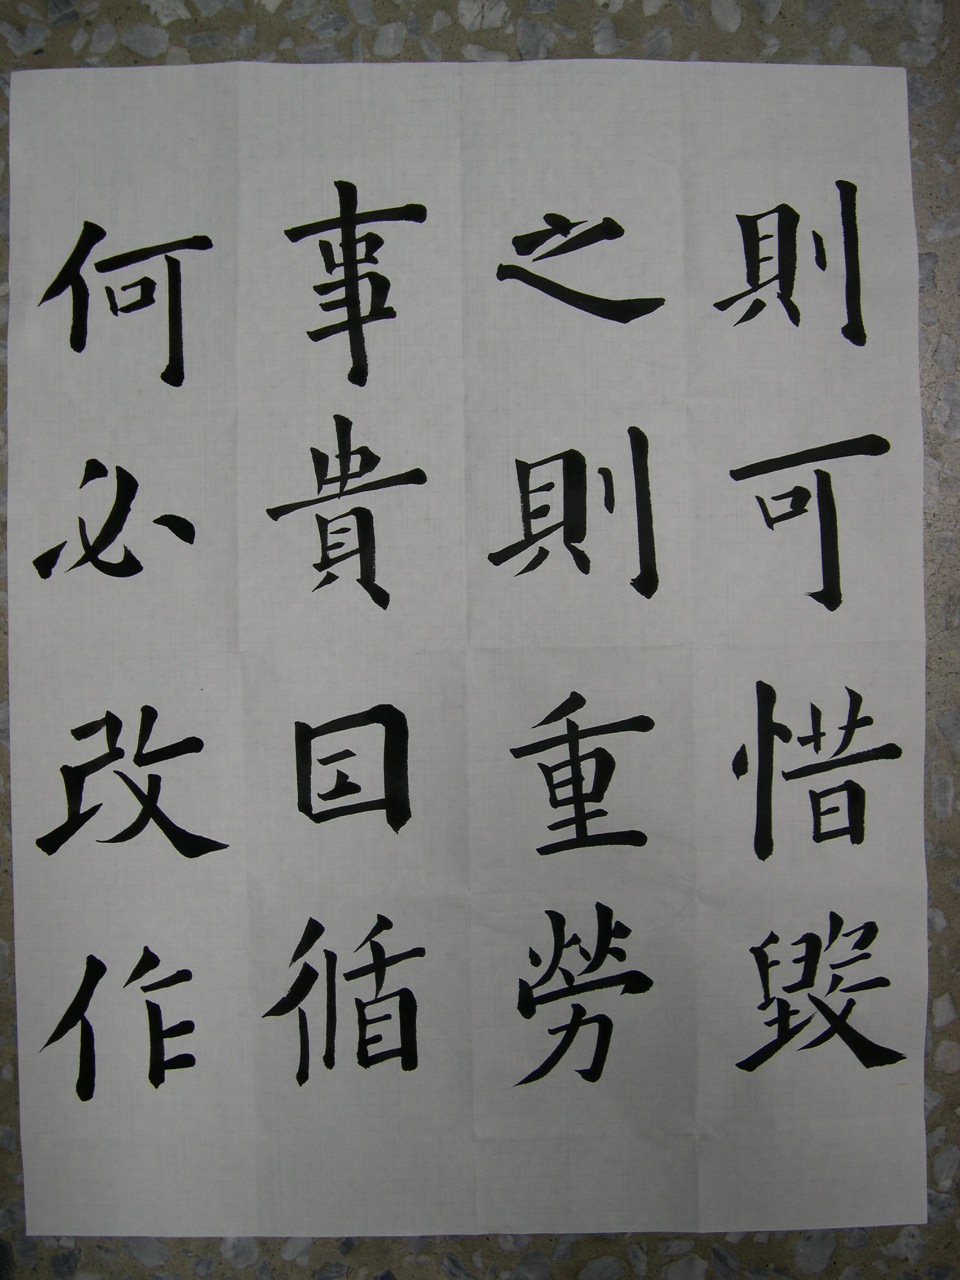 則可惜毀
之則重勞
事貴因循
何必改作